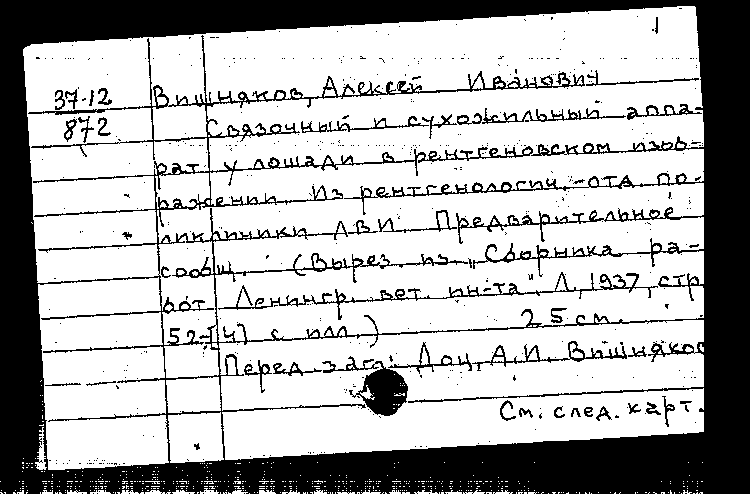 1
37-12 Вишняков, Алексей Иванович
872 Связочный и сухожильный аппа-
рат у лошади в рентгеновском изоб-
ражении. Из рентгенологич.-отд. по-
ликлиники ЛВИ. Предварительное
сообщ. (Вырез. из „Сборника ра-
бот Ленингр. вет. ин-та". Л., 1937, стр
52-[4] с илл.) 25 см.
Перед загл: Доц. А.И. Вишняков
См. след. карт.